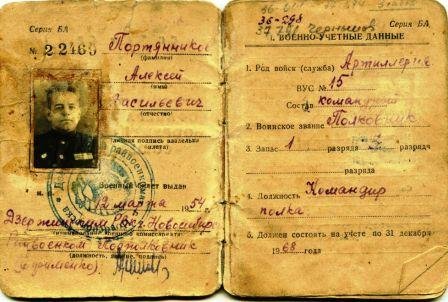 Серия БЛ
№ 22469
Портянников
(фамилия)
Алексей
(имя)
Васильевич
(отчество)
личная подпись владельца
билета)
Военный билет выдан
12 марта 1954 г.
Дзержинский РВК г. Новосибир
Райвоенком Подполковник
(должность, звание, подпись)
36-298
Серия БЛ
I. ВОЕННО-УЧЕТНЫЕ ДАННЫЕ
1. Род войск (служба) Артиллерия
ВУС № 15
Состав командный
2. Воинское звание Полковник
3. Запас 1 разряда
разряда
4. Должность Командир
полка
5. Должен состоять на учёте по 31 декабря
1968 года